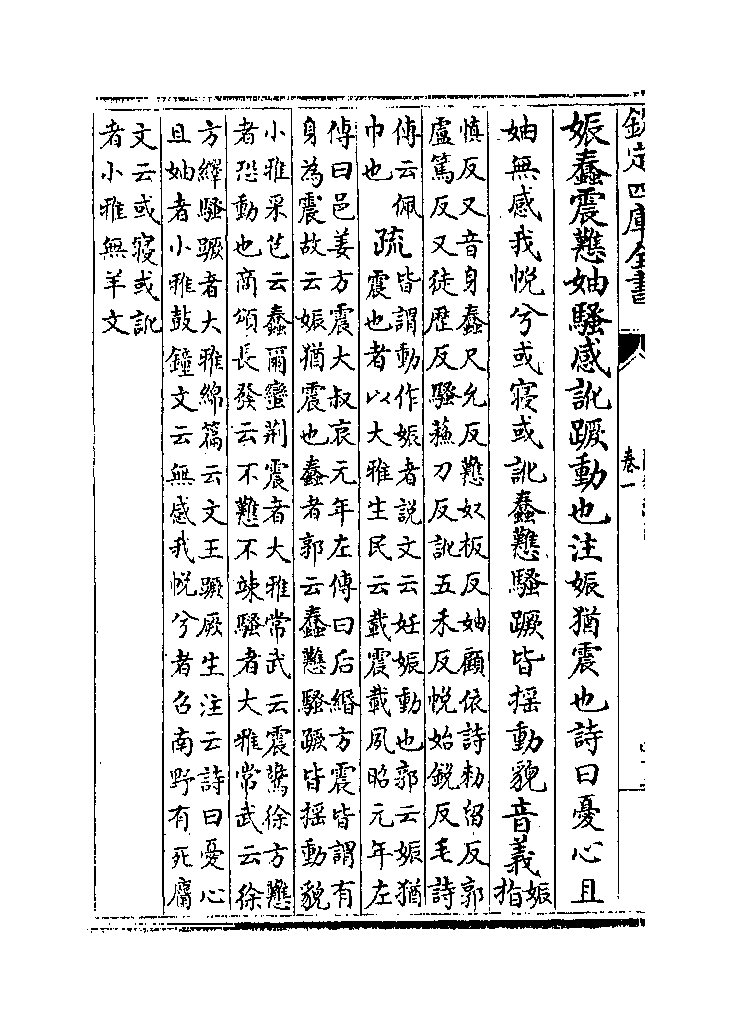 欽定四庫全書
卷一
娠蠢震戁妯騷感訛蹶動也注娠猶震也詩曰憂心且
妯無感我帨兮或寢或訛蠢戁騷蹶皆揺動貌音義娠指
慎反又音身蠢尺允反戁奴板反妯顧依詩勑留反郭
盧篤反又徒歷反騷蘇刀反訛五禾反帨始鋭反毛詩
傳云佩
巾也
疏
皆謂動作娠者說文云妊娠動也郭云娠猶
震也者以大雅生民云載震載夙昭元年左
傳曰邑姜方震大叔哀元年左傳曰后緡方震皆謂有
身為震故云娠猶震也蠢者郭云蠢戁騷蹶皆揺動貌
小雅采芑云蠢爾蠻荊震者大雅常武云震驚徐方戁
者恐動也商頌長發云不戁不竦騷者大雅常武云徐
方繹騷蹶者大雅綿篇云文王蹶厥生注云詩曰憂心
且妯者小雅鼓鐘文云無感我帨兮者召南野有死麕
文云或寢或訛
者小雅無羊文